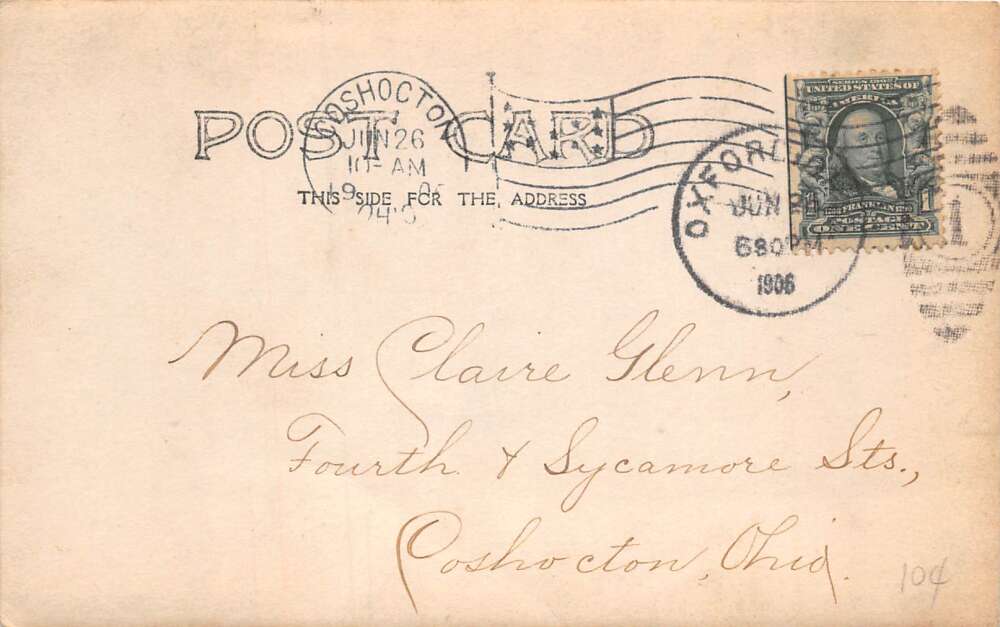 POST CARD
THIS SIDE FOR THE ADDRESS
COSHOCTON
JUN 26
10 AM
OXFORD
JUN
1906
1
SERIES 1902
UNITED STATES OF
AMERICA
FRANKLIN
POSTAGE
ONE CENT
1
Miss Claire Glenn,
Fourth & Sycamore Sts.,
Coshocton, Ohio.
10¢